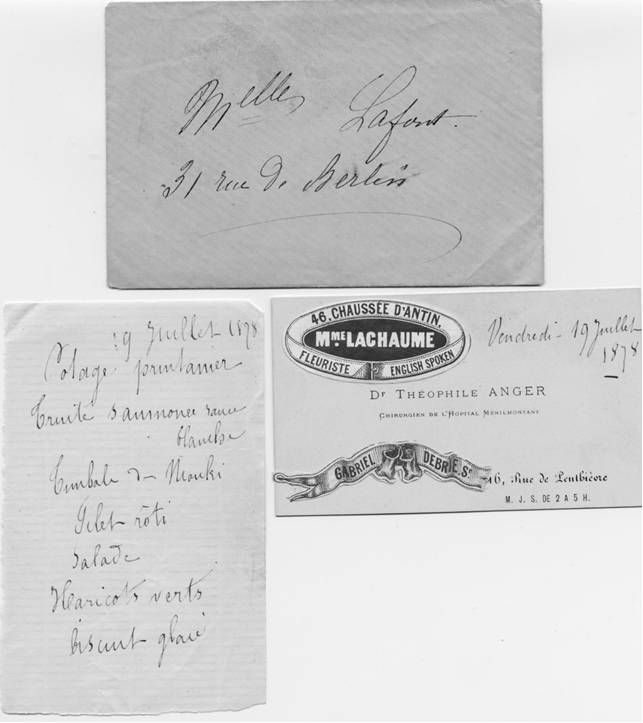 Melles Lafont.
31 rue de Berlin
19 Juillet 1878
Potage printanier
Truite saumonée sauce
blanche
Timbale de
Filet rôti
Salade
Haricots verts
Biscuit glacé
46, CHAUSSÉE D'ANTIN.
MME LACHAUME
FLEURISTE ENGLISH SPOKEN
Vendredi 19 Juillet
1878
DR THÉOPHILE ANGER
CHIRURGIEN DE L'HOPITAL MÉNILMONTANT
GABRIEL DEBRIE, Sr
16, Rue de Penthièvre
M. J. S. DE 2 A 5 H.